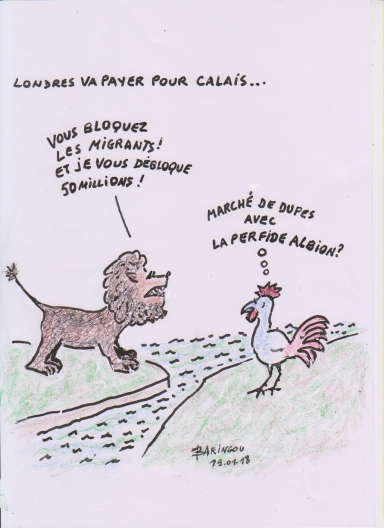 LONDRES VA PAYER POUR CALAIS...
VOUS BLOQUEZ
LES MIGRANTS!
ET JE VOUS DÉBLOQUE
50 MILLIONS!
MARCHÉ DE DUPES
AVEC
LA PERFIDE ALBION?
BARINGOU
19.01.18